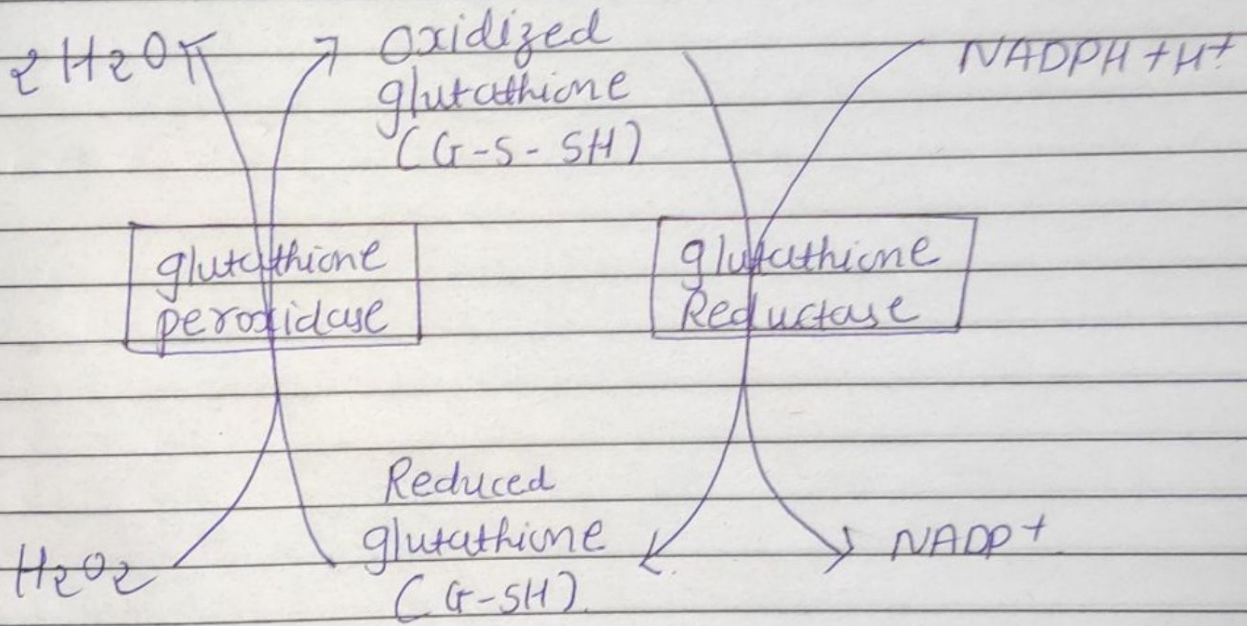 2 H2O
oxidized
glutathione
(G-S-SH)
NADPH + H+
glutathione
peroxidase
glutathione
Reductase
H2O2
Reduced
glutathione
(G-SH)
NADP+